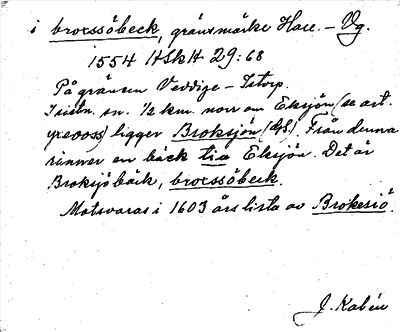 i brocssöbeck, gränsmärke Hall. – Vg.
1554 HSkH 29:68
På gränsen Veddige – Istorp.
I sistn. sn. ½ km. norr om Eksjön (se art.
yxeooss) ligger Broksjön (GS.). Från denna
rinner en bäck till Eksjön. Det är
Broksjöbäck, brocssöbeck.
Motsvaras i 1603 års lista av Brokesiö.
J. Kalén